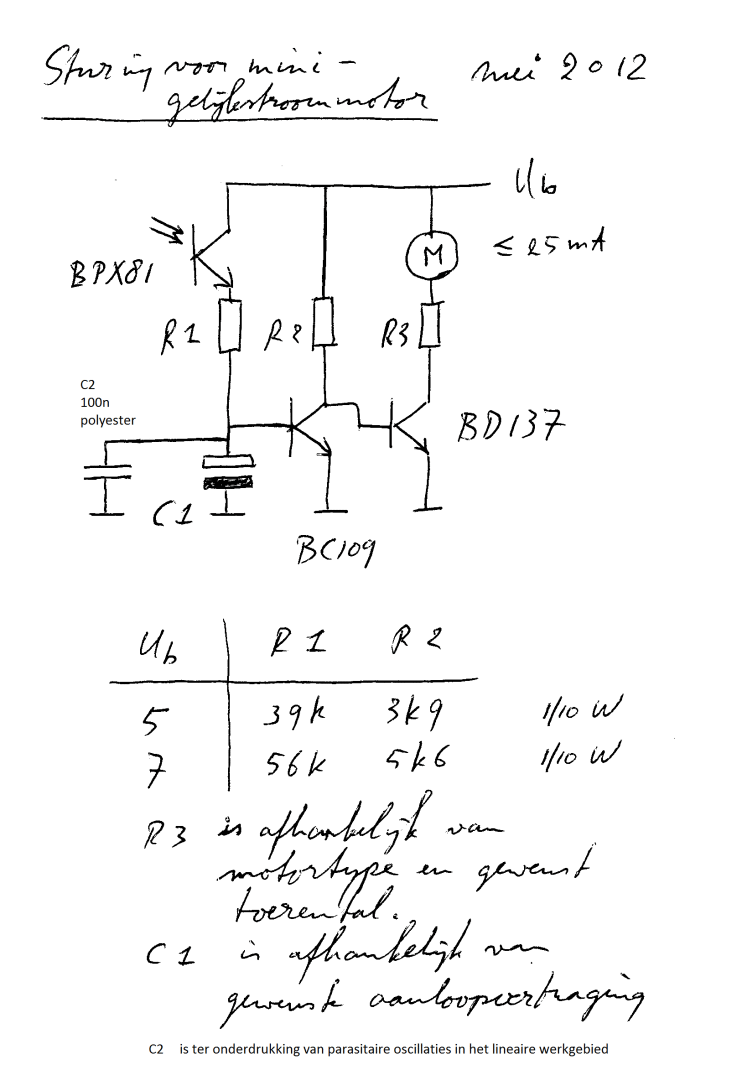 Sturing voor mini-
gelijkstroommotor
mei 2012
Ub
≤ 25 mA
M
BPX81
R1
R2
R3
C2
100n
polyester
BD137
C1
BC109
Ub R1 R2
5 39k 3k9 1/10 W
7 56k 5k6 1/10 W
R3 is afhankelijk van
motortype en gewenst
toerental.
C1 is afhankelijk van
gewenste aanloopvertraging
C2 is ter onderdrukking van parasitaire oscillaties in het lineaire werkgebied